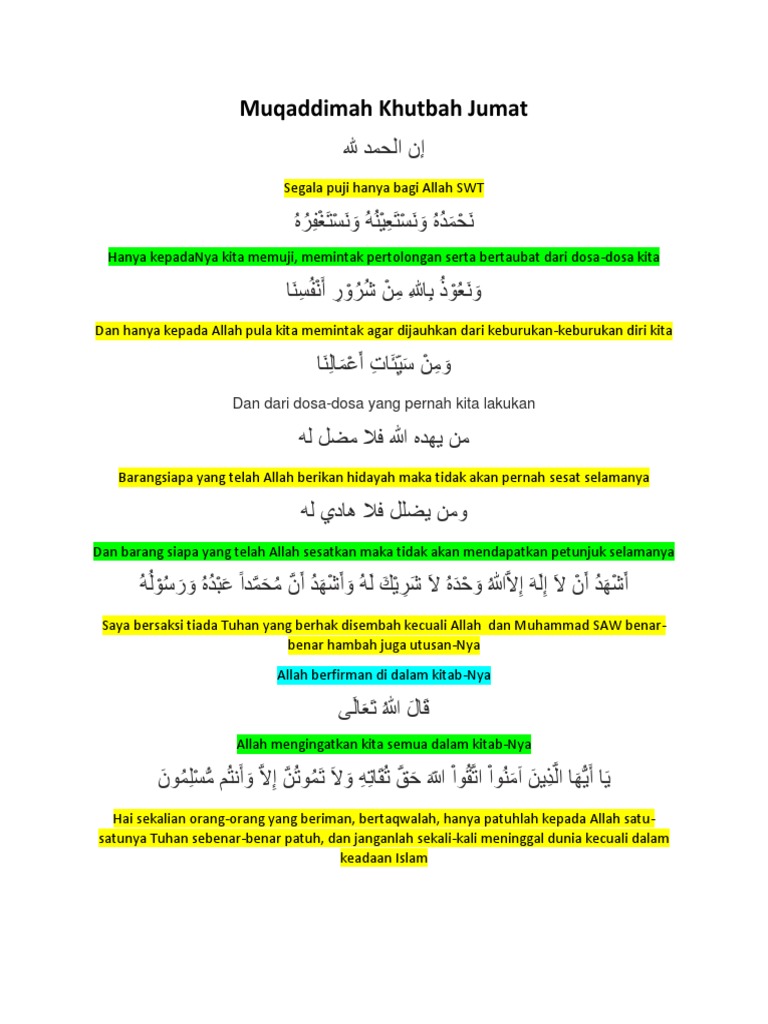 Muqaddimah Khutbah Jumat
إن الحمد لله
Segala puji hanya bagi Allah SWT
نَحْمَدُهُ وَنَسْتَعِيْنُهُ وَنَسْتَغْفِرُهُ
Hanya kepadaNya kita memuji, memintak pertolongan serta bertaubat dari dosa-dosa kita
وَنَعُوْذُ بِاللهِ مِنْ شُرُوْرِ أَنْفُسِنَا
Dan hanya kepada Allah pula kita memintak agar dijauhkan dari keburukan-keburukan diri kita
وَمِنْ سَيِّئَاتِ أَعْمَالِنَا
Dan dari dosa-dosa yang pernah kita lakukan
من يهده الله فلا مضل له
Barangsiapa yang telah Allah berikan hidayah maka tidak akan pernah sesat selamanya
ومن يضلل فلا هادي له
Dan barang siapa yang telah Allah sesatkan maka tidak akan mendapatkan petunjuk selamanya
أَشْهَدُ أَنْ لاَ إِلَهَ إِلاَّاللهُ وَحْدَهُ لاَ شَرِيْكَ لَهُ وَأَشْهَدُ أَنَّ مُحَمَّداً عَبْدُهُ وَرَسُوْلُهُ
Saya bersaksi tiada Tuhan yang berhak disembah kecuali Allah dan Muhammad SAW benar-
benar hambah juga utusan-Nya
Allah berfirman di dalam kitab-Nya
قَالَ اللهُ تَعَالَى
Allah mengingatkan kita semua dalam kitab-Nya
يَا أَيُّهَا الَّذِينَ آمَنُواْ اتَّقُواْ اللهَ حَقَّ تُقَاتِهِ وَلاَ تَمُوتُنَّ إِلاَّ وَأَنتُم مُّسْلِمُونَ
Hai sekalian orang-orang yang beriman, bertaqwalah, hanya patuhlah kepada Allah satu-
satunya Tuhan sebenar-benar patuh, dan janganlah sekali-kali meninggal dunia kecuali dalam
keadaan Islam